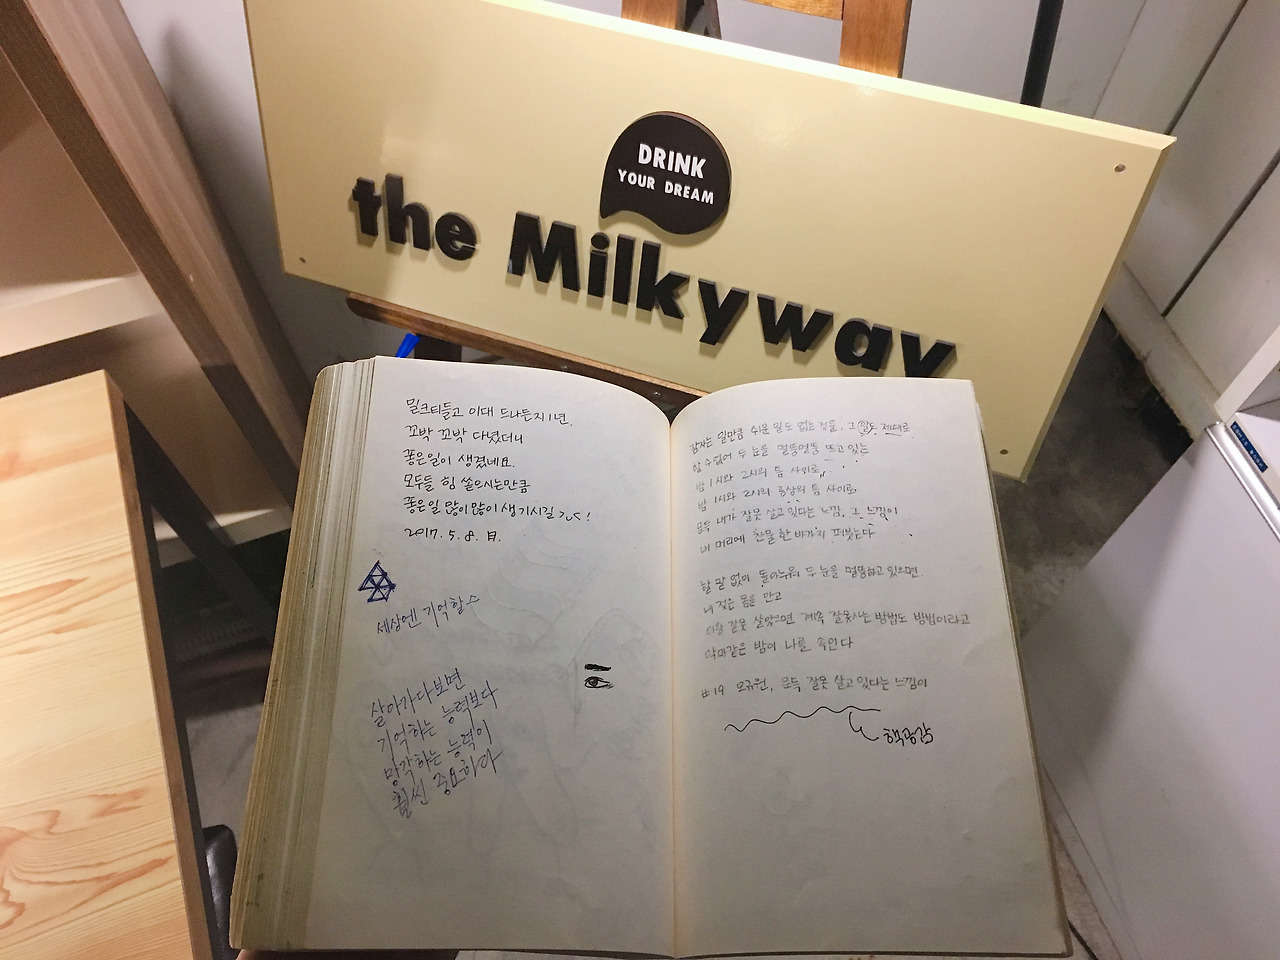 DRINK
YOUR DREAM
the Milkyway
밀크티들고 이대 드나든지 1년.
꼬박 꼬박 다녔더니
좋은일이 생겼네요.
모두들 힘 쏟으시는만큼
좋은일 많이많이 생기시길 ㄱㄷ!
2017. 5. 8. 月.
세상엔 기억할 수
살아가다보면
기억하는 능력보다
망각하는 능력이
훨씬 중요하다
잠자는 일만큼 쉬운 일도 없는 것을, 그 일도 제대로
할 수 없어 두 눈을 멀뚱멀뚱 뜨고 있는
밤 1시와 2시의 틈 사이로,
밤 1시와 2시의 공상의 틈 사이로
문득 내가 잘못 살고 있다는 느낌, 그 느낌이
내 머리에 찬물 한 바가지 퍼붓는다
할 말 없이 돌아누워 두 눈을 멀뚱하고 있으면,
내 젖은 몸을 안고
이왕 잘못 살았으면 계속 잘못사는 방법도 방법이라고
악마같은 밤이 나를 속인다
#19 오규원, 문득 잘못 살고 있다는 느낌이
책공감